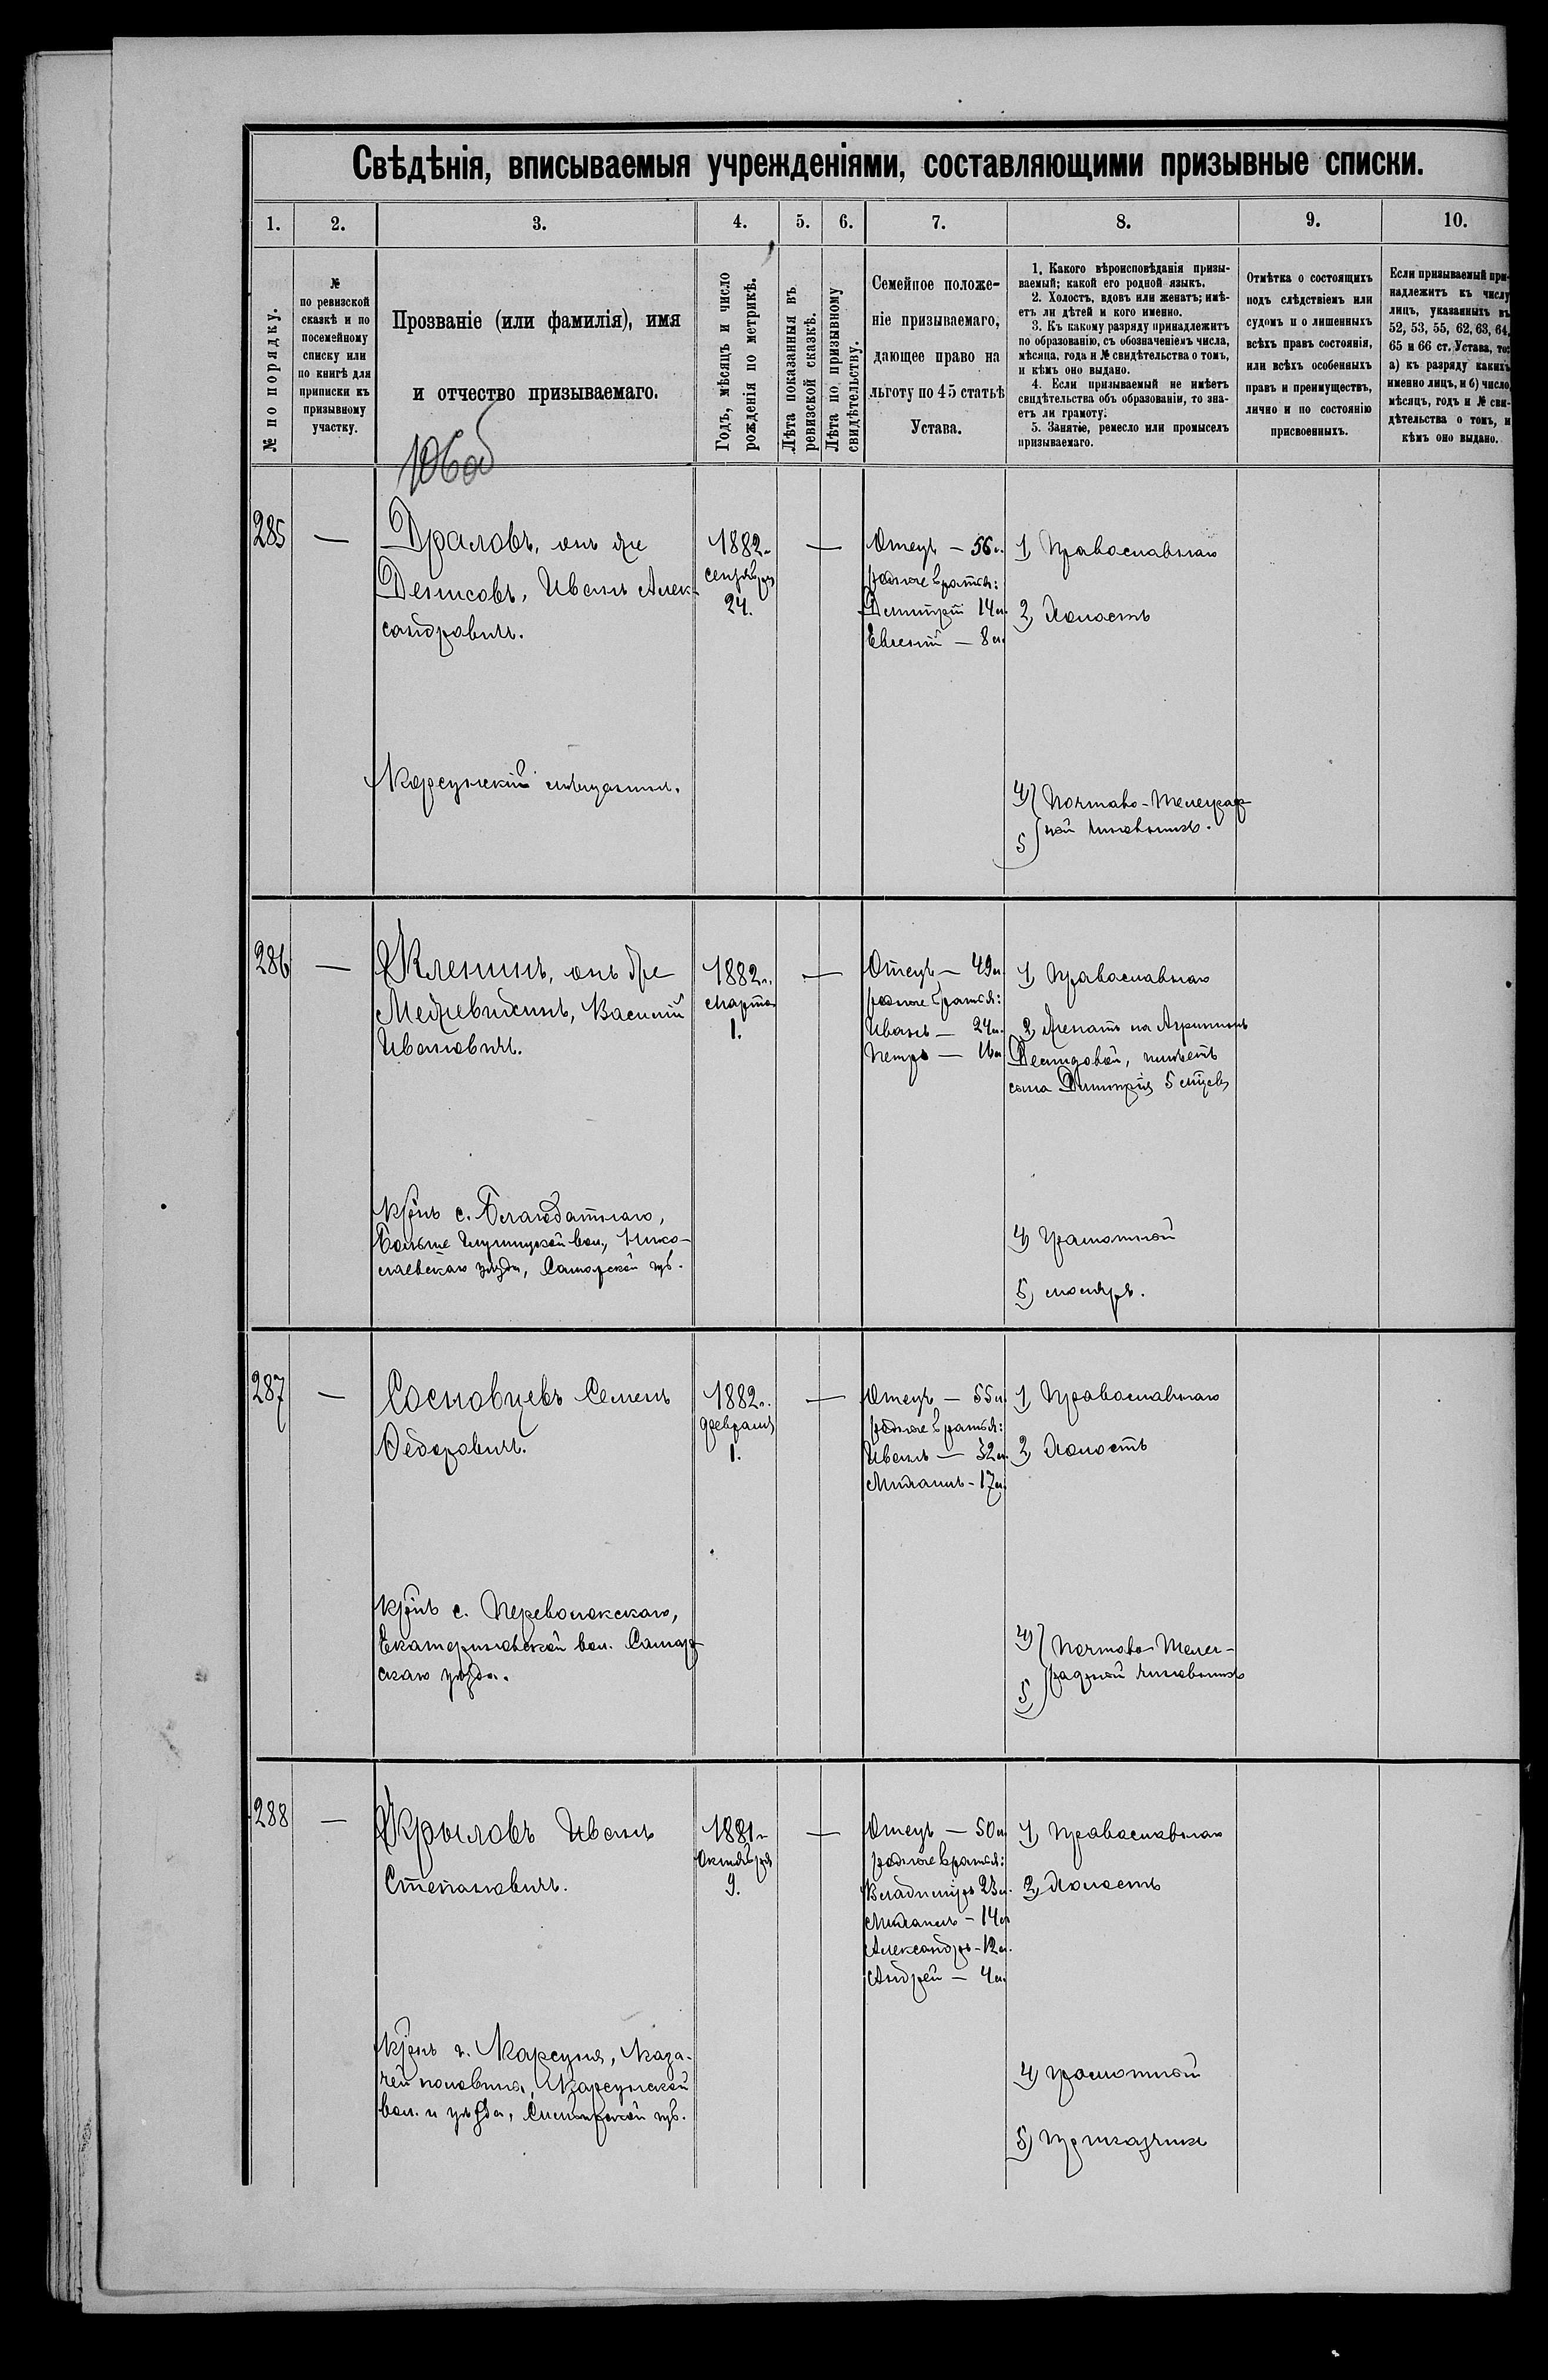 Свѣдѣнія, вписываемыя учрежденіями, составляющими призывные списки.
1. 2. 3. 4. 5. 6. 7. 8. 9. 10.
№ по порядку.
№
по ревизской
сказкѣ и по
посемейному
списку или
по книгѣ для
приписки къ
призывному
участку.
Прозваніе (или фамилія), имя
и отчество призываемаго.
Годъ, мѣсяцъ и число
рожденія по метрикѣ.
Лѣта показанныя въ
ревизской сказкѣ.
Лѣта по призывному
свидѣтельству.
Семейное положе-
ніе призываемаго,
дающее право на
льготу по 45 статьѣ
Устава.
1. Какого вѣроисповѣданія призы-
ваемый; какой его родной языкъ.
2. Холостъ, вдовъ или женатъ; имѣ-
етъ ли дѣтей и кого именно.
3. Къ какому разряду принадлежитъ
по образованію, съ обозначеніемъ числа,
мѣсяца, года и № свидѣтельства о томъ,
и кѣмъ оно выдано.
4. Если призываемый не имѣетъ
свидѣтельства объ образованіи, то зна-
етъ ли грамоту.
5. Занятіе, ремесло или промыселъ
призываемаго.
Отмѣтка о состоящихъ
подъ слѣдствіемъ или
судомъ и о лишенныхъ
всѣхъ правъ состоянія,
или всѣхъ особенныхъ
правъ и преимуществъ,
лично и по состоянію
присвоенныхъ.
Если призываемый при-
надлежитъ къ числу
лицъ, указанныхъ въ
52, 53, 55, 62, 63, 64,
65 и 66 ст. Устава, то:
а) къ разряду какихъ
именно лицъ, и б) число,
мѣсяцъ, годъ и № сви-
дѣтельства о томъ, и
кѣмъ оно выдано.
106об
285
—
Драловъ, онъ же
Денисовъ, Иванъ Алек-
сандровичъ.
Корсунскій мѣщанинъ.
1882 г.
сентября
24.
—
Отецъ — 56 л.
родные братья:
Димитрій 14 л.
Евгеній — 8 л.
1) Православнаго
2) Холостъ
4)
5
Почтово-Телеграф-
ный чиновникъ.
286
—
Кленинъ, онъ же
Медвевидкинъ, Василій
Ивановичъ.
кр-нъ с. Благодатнаго,
Больше Глушицкой вол., Нико-
лаевскаго уѣзда, Самарской губ.
1882 г.
Марта
1.
—
Отецъ — 49 л.
родные братья:
Иванъ — 24 л.
Петръ — 16 л.
1) Православнаго
2) Женатъ на Агрипинѣ
Демидовой, имѣетъ
сына Димитрія 5 мѣсяц.
4) грамотный
5) столяръ.
287
—
Сосновцевъ Семенъ
Ѳедоровичъ.
кр-нъ с. Переволокскаго,
Екатериновской вол. Самар-
скаго уѣзда.
1882 г.
февраля
1.
—
Отецъ — 55 л.
родные братья:
Иванъ — 32 л.
Михаилъ — 17 л.
1) Православнаго
2) Холостъ
4)
5)
Почтово-Телег-
рафный чиновникъ
288
—
Крыловъ Иванъ
Степановичъ.
кр-нъ г. Карсуня, Каза-
чей половины, Карсунской
вол. и уѣзда, Симбирской губ.
1881 г.
Октября
9.
—
Отецъ — 50 л.
родные братья:
Владиміръ 23 л.
Михаилъ — 14 л.
Александръ — 12 л.
Андрей — 4 л.
1) Православнаго
2) Холостъ
4) грамотный
5) приказчикъ